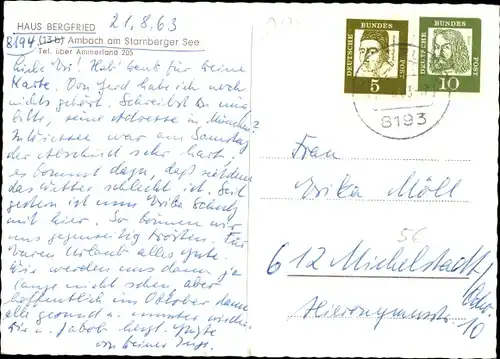 HAUS BERGFRIED
21.8.63
8194 (13b) Ambach am Starnberger See
Tel. über Ammerland 205
Liebe Eri! Hab' Dank für Deine
Karte. Von Gerd habe ich noch
nichts gehört. Schreibst Du mir
bitte, seine Adresse in München?
war am Samstag
der Abschied sehr hart,
es kommt dazu, daß seitdem
das Wetter schlecht ist. Seit
gestern ist nun Erika Schulz
mit hier. So können wir
uns gegenseitig trösten. Für
Euren Urlaub alles Gute.
Wir werden uns dann ja
lange nicht sehen aber
hoffentlich im Oktober dann
alle gesund u. munter wieder.
Dir u. Jakob herzl. Grüße
von Deiner
DEUTSCHE BUNDES POST
5
DEUTSCHE BUNDES POST
10
8193
Frau
Erika Möll
56
612 Michelstadt/
Odw.
Hieronymusstr. 10